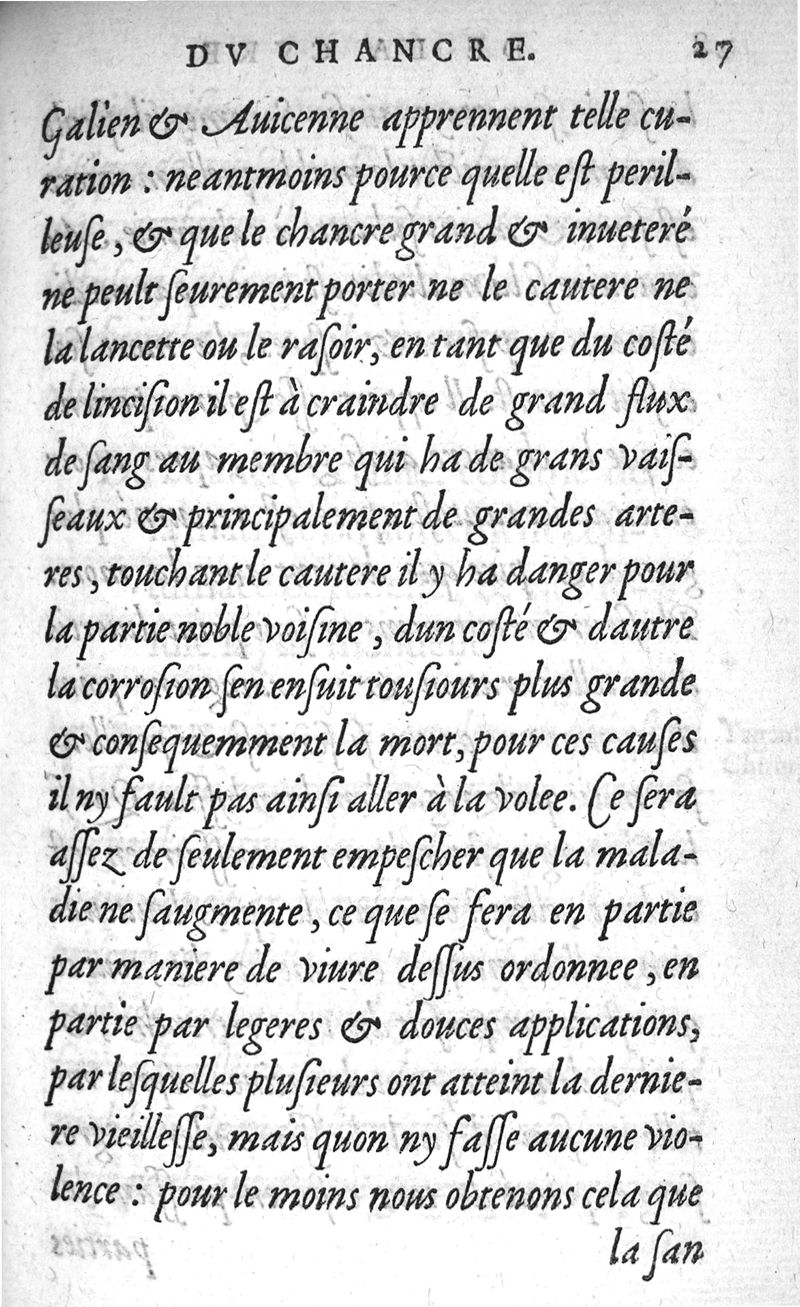 DV CHANCRE. 27
Galien & Auicenne apprennent telle cu-
ration : neantmoins pource quelle eſt peril-
leuſe, & que le chancre grand & inueteré
ne peult ſeurement porter ne le cautere ne
la lancette ou le raſoir, en tant que du coſté
de linciſion il eſt à craindre de grand flux
de ſang au membre qui ha de grans vaiſ-
ſeaux & principalement de grandes arte-
res, touchant le cautere il y ha danger pour
la partie noble voiſine, dun coſté & dautre
la corroſion ſen enſuit touſiours plus grande
& conſequemment la mort, pour ces cauſes
il ny fault pas ainſi aller à la volee. Ce ſera
aſſez de ſeulement empeſcher que la mala-
die ne ſaugmente, ce que ſe fera en partie
par maniere de viure deſſus ordonnee, en
partie par legeres & douces applications,
par leſquelles pluſieurs ont atteint la dernie-
re vieilleſſe, mais quon ny faſſe aucune vio-
lence : pour le moins nous obtenons cela que
la ſan